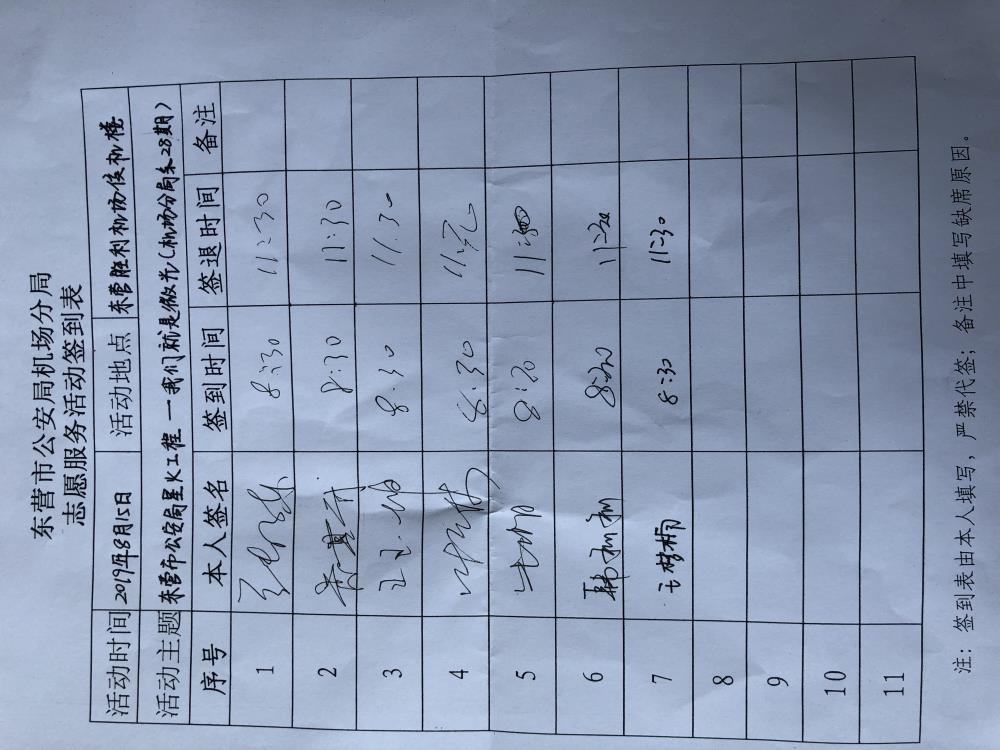 东营市公安局机场分局
志愿服务活动签到表
活动时间 2019年8月15日 活动地点 东营胜利机场候机楼
活动主题 东营市公安局星火工程一我们就是微光(机场分局第28期)
序号 本人签名 签到时间 签退时间 备注
1 8:30 11:30
2 8:30 11:30
3 8:30 11:30
4 8:30 11:30
5 8:30 11:30
6 8:30 11:30
7 8:30 11:30
8
9
10
11
注：签到表由本人填写，严禁代签；备注中填写缺席原因。